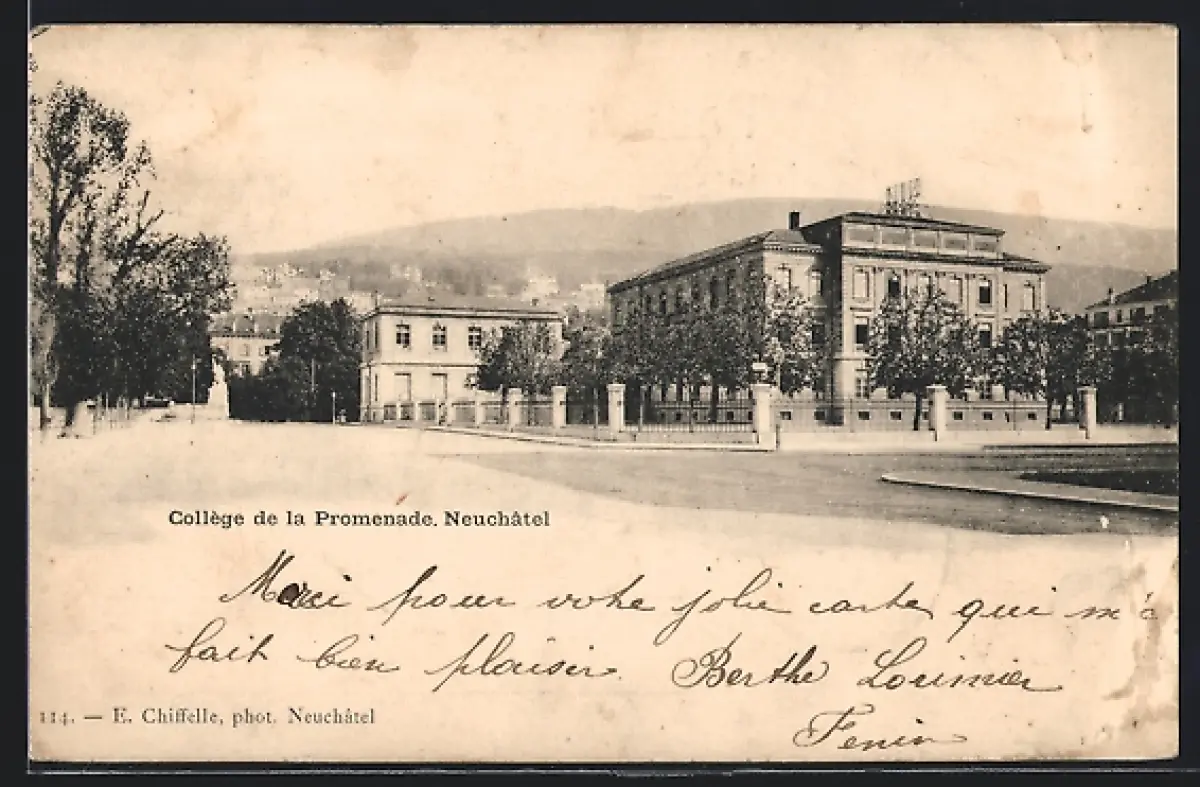 Collège de la Promenade. Neuchâtel
Merci pour votre jolie carte qui m'a
fait bien plaisir. Berthe Lorimier
Fenin
114. — E. Chiffelle, phot. Neuchâtel